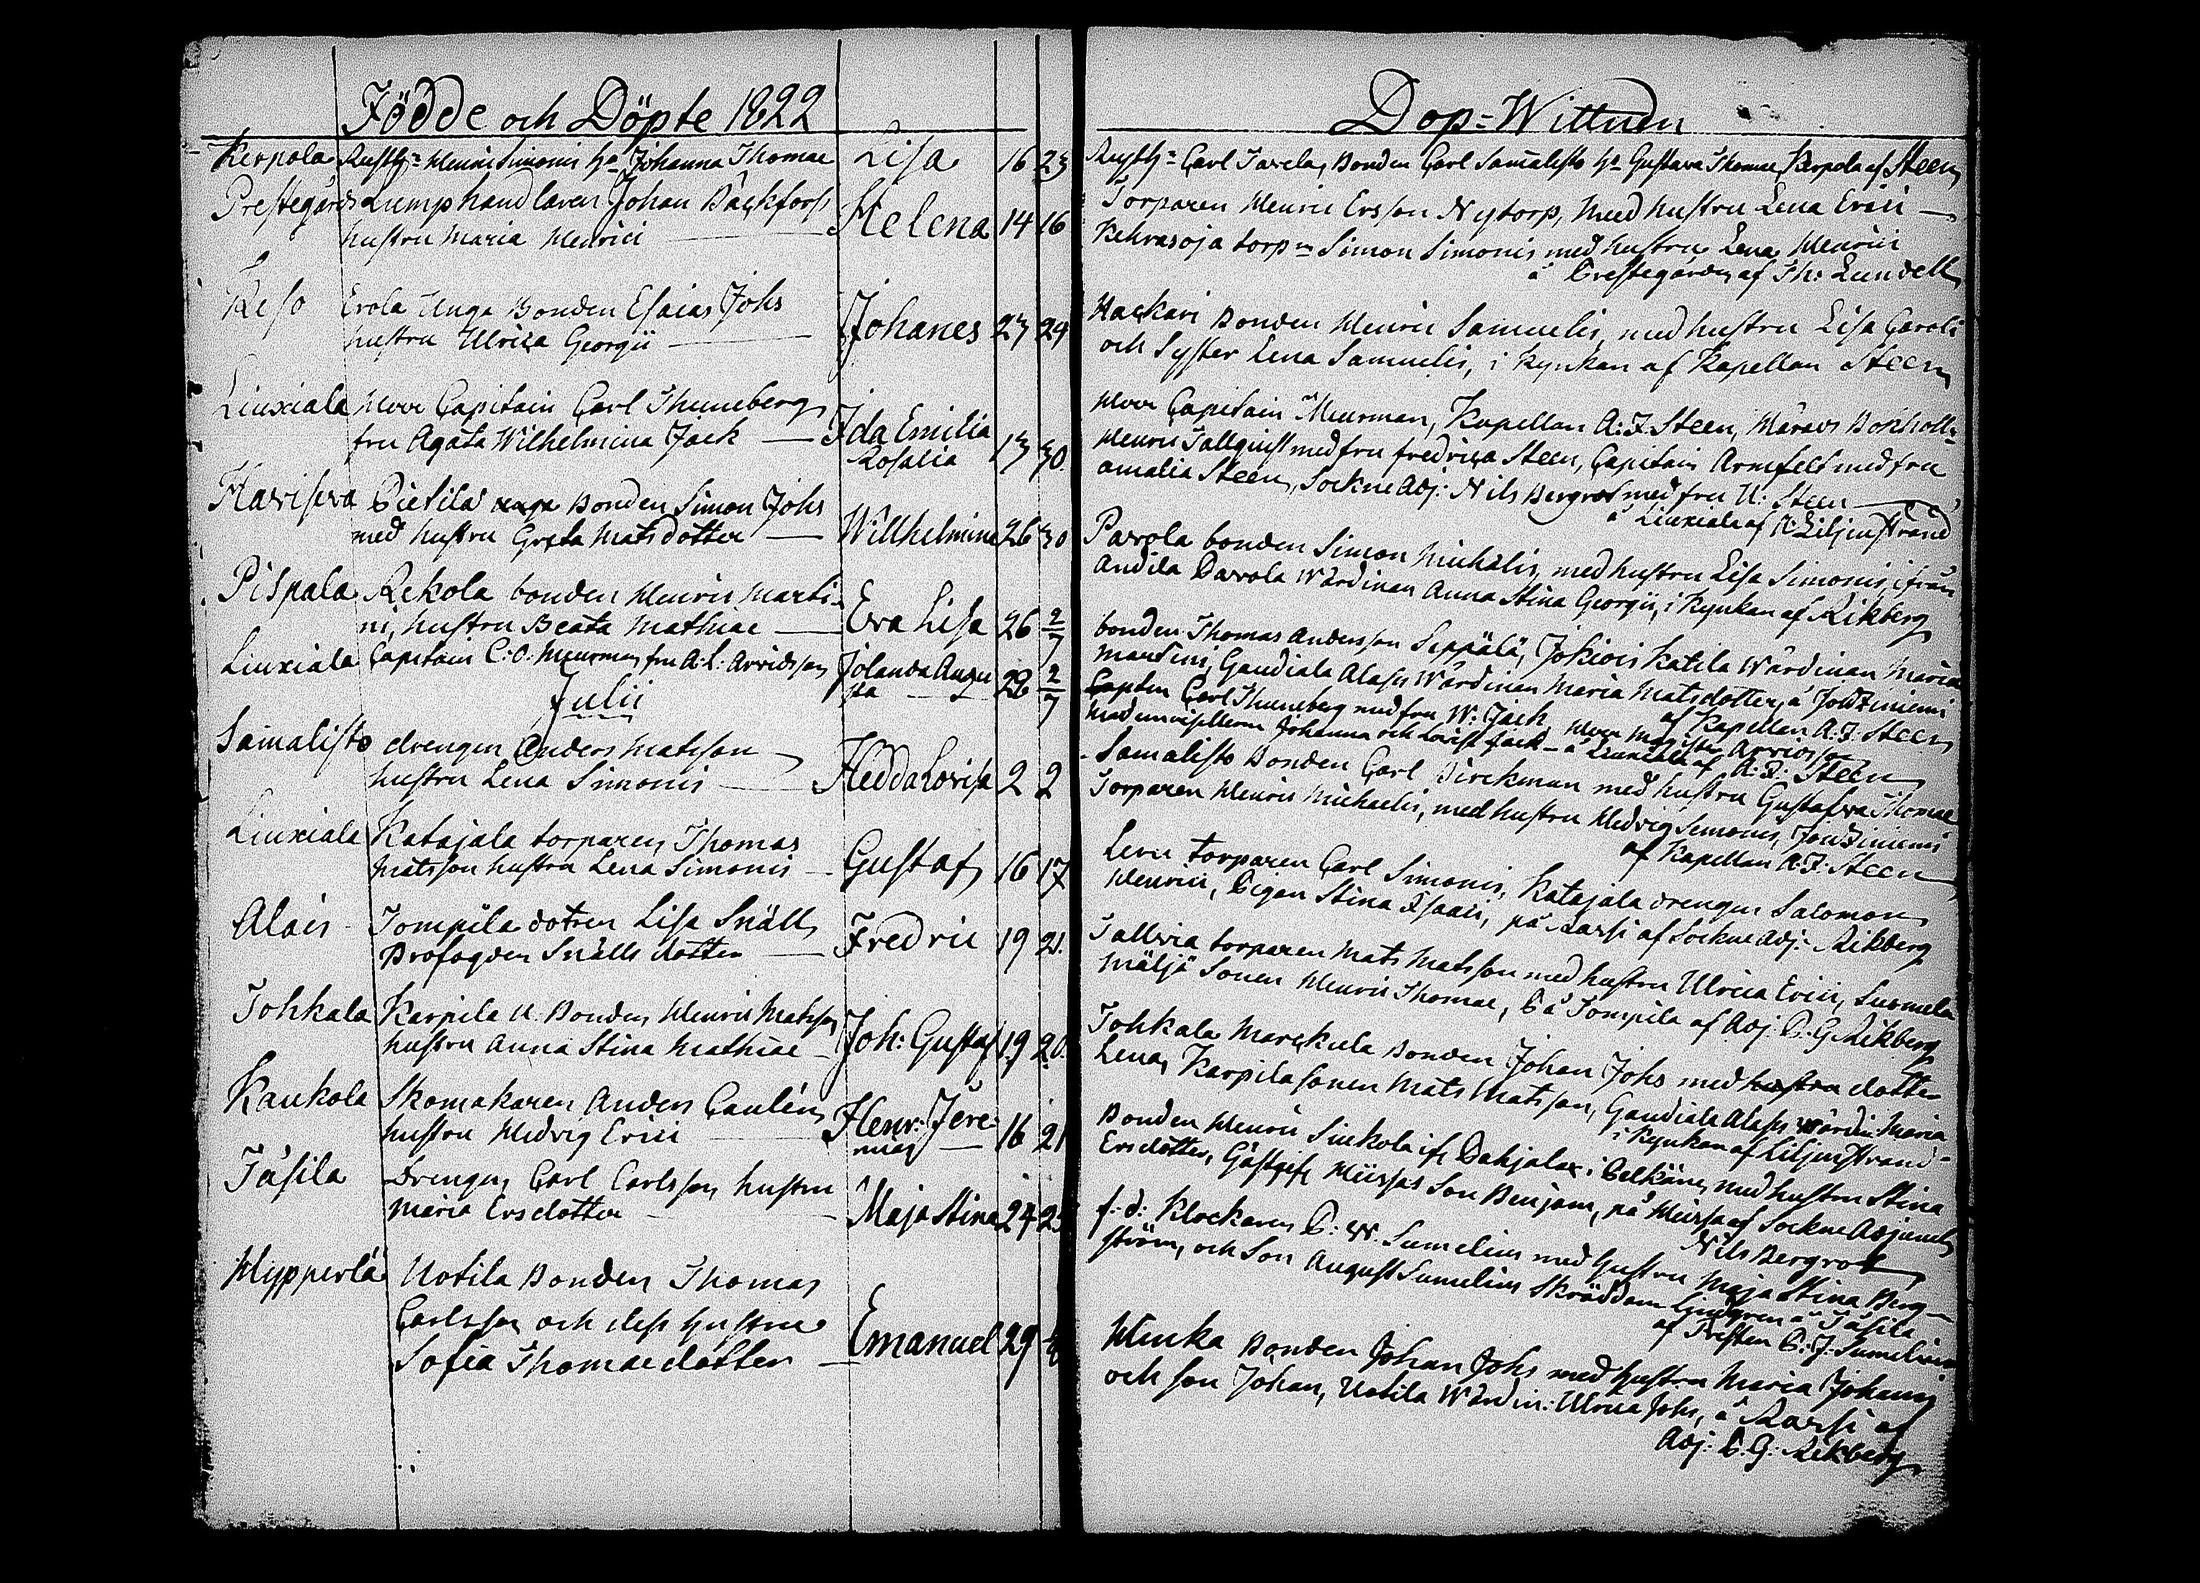 Födde och Döpte 1822
Kerpola Rusth= Henric Simonis h= Johanna Thomae Lisa 16 23
Prestegårds Lumphandlaren Johan Bäckfors
hustru Maria Henrici Helena 14 16
Keso Erola Unga Bonden Esaias Johs
hustru Ulrica Georgii Johanes 23 29
Liuxiala Herr Capitain Carl Thuneberg
fru Agata Wilhelmina Jack Ida Emilia
Rosalia 13 30.
Haviseva Pietilä Bonden Simon Johs
med hustru Greta Matsdotter Willhelmina 26 30
Pispala Rekola bonden Henric Marti-
ni, hustru Beata Mathiae Eva Lisa 26 2/7
Liuxiala Capitain C: O: Meurman fru A: L: Arvidsson Jolanda Augu
sta 22 2/7
Julii
Samalisto drengen Anders Matsson
hustru Lena Simonis Hedda Lovisa 2 2
Liuxiala Katajala torparen Thomas
Matsson hustru Lena Simonis Gustaf 16 17
Alais Tompila dotren Lisa Snäll
Profogden Snälls dotter Fredric 19 21.
Tohkala Karpila U: Bonden Henric Matsson
hustru Anna Stina Mathiae Joh: Gustaf 19 20.
Kaukola Skomakaren Anders Caulén
hustru Hedvig Erici Henr: Jere-
mias 16 21
Täsilä Drengen Carl Carlsson hustru
Maria Ersdotter Maja Stina 24 25
Hypperlä Uotila Bonden Thomas
Carlsson och dess hustru
Sofia Thomaedotter Emanuel 29
Dop=Wittnen
Rusth= Carl Tavela, Bonden Carl Samalisto h= Gustava Thomae, Kerpola af Steen
Torparen Henric Ersson Nytorp, med hustru Lena Erici
Kehrasoja torp= Simon Simonis med hustru Lena Henrici
å Prestegården af Th: Lundell
Hackari Bonden Henric Samuelis, med hustru Lisa Caroli
och Syster Lena Samuelis, i Kyrkan af Kapellan Steen
Herr Capitain Meurman, Kapellan A: F. Steen, Bokholl=
Henric Tallquist med fru Fredrica Steen, Capitain Armfelt med fru
Amalia Steen, Sockne Adj: Nils Bergrot med fru U: Steen
å Liuxiala af Liljenstrand
Parola bonden Simon Michelis, med hustru Lisa Simonis, ifrån
Andila Parola Wärdinan Anna Stina Georgii, i Kyrkan af Rikberg
bonden Thomas Andersson Seppälä, Jokiois Katila Wärdinan Maria
Martini, Gaudiala Alasen Wärdinan Maria Matsdotter, å Joutziniemi
af Kapellan A. F. Steen
Capten Carl Thuneberg med fru W: Jack Herr Arvidsson
Johanna och Lovisa Jack å Liuxiala af A: F: Steen
Samalisto Bonden Carl Birckman med hustru Gustafva Thomae
Torparen Henric Michaelis, med hustru Hedvig Simonis, Joutziniemi
af Kapellan A. F. Steen
torparen Carl Simonis, Katajala drengen Salomon
Henrici, Pigan Stina Isaaci, på Rarsi af Sockne Adj: Rikberg
Tallria torparen Mats Matsson med hustru Ulrica Erici, Surmela
Mäljä Sonen Henric Thomae, På Tompila af Adj: P. G. Rikberg
Tohkala Marckula Bonden Johan Johs med dotter
Lena, Karpila sonen Mats Matsson, Gaudiala Alasen Wärdin: Maria
i Kyrkan af Liljenstrand
Bonden Henric Siukola ifr Pahjalax i Pelkäne, med hustru Stina
Ersdotter, Gästgifv son Benjam, på af Sockne Adjuncten
Nils Bergrot
f. d. Klockaren C: W. Sumelius med hustru Maja Stina Berg-
ström, och Son August Sumelius Skräddare Lindgren å Täsilä
af Presten C. J. Sumelius
Bonden Johan Johs med hustru Maria Johanis
och son Johan, Uotila Wärdin: Ulrica Johs, å Rarsi af
Adj: P. G: Rikberg